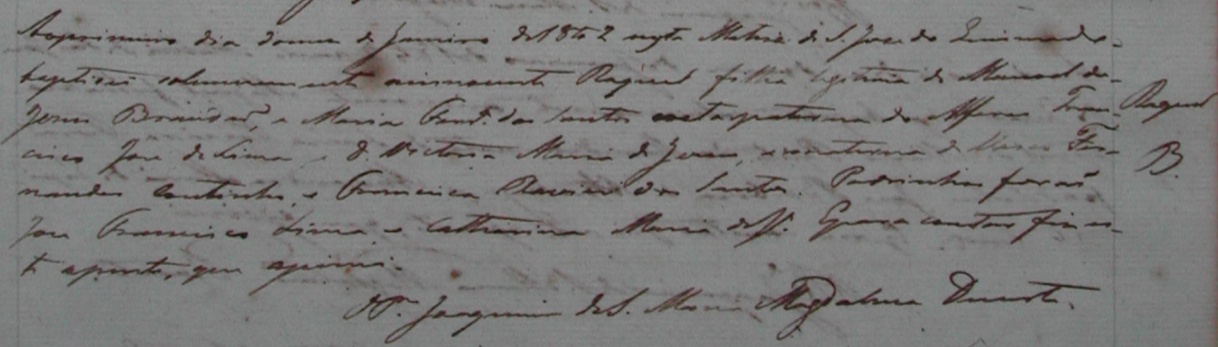 Aoprimeiro dia do mes de Janeiro de 1862 nesta Matriz de S. Jose do
baptisei solemnemente a innocente Raquel filha legitima de Manoel de
Jesus Brandaõ, e Maria dos Santos neta paterna do Alferes Fran-
cisco Jose de Lima, e D. Victoria Maria de Jesus, e materna de Fer-
nandes Coutinho, e Francisca dos Santos. Padrinhos foraõ
Jose Francisco Lima e Catharina Maria
te aponto, que assinei.
Joaquim de S. Maria Magdalena Duarte.
Raquel
B.